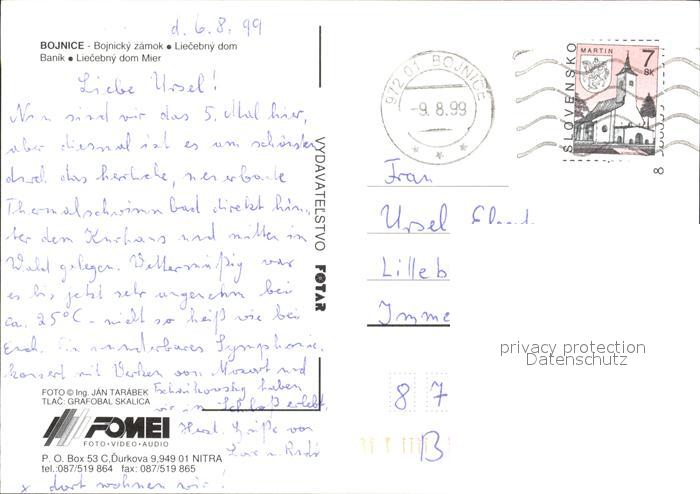 d. 6.8.99
BOJNICE - Bojnický zámok ● Liečebný dom
Baník ● Liečebný dom Mier
Liebe Ursel!
Nun sind wir das 5. Mal hier,
aber diesmal ist es am schönsten
durch das herrliche, neuerbaute
Thermalschwimmbad direkt hin-
ter dem Kurhaus und mitten im
Wald gelegen. Wettermäßig war
es bis jetzt sehr angenehm bei
ca. 25°C - nicht so heiß wie bei
Euch. Ein wunderbares Symphonie-
konzert mit Werken von Mozart und
Tschaikowsky haben
wir im Schloß erlebt.
Herzl. Grüße von
und
x dort wohnen wir!
FOTO © Ing. JÁN TARÁBEK
TLAČ: GRAFOBAL SKALICA
FOMEI
FOTO•VIDEO•AUDIO
P. O. Box 53 C,Ďurkova 9,949 01 NITRA
tel.:087/519 864 fax: 087/519 865
VYDAVATEĽSTVO FOTAR
972 01 BOJNICE
-9.8.99
SLOVENSKO
MARTIN
7
Sk
Frau
Ursel
Lilleb
Imme
87
B
privacy protection
Datenschutz